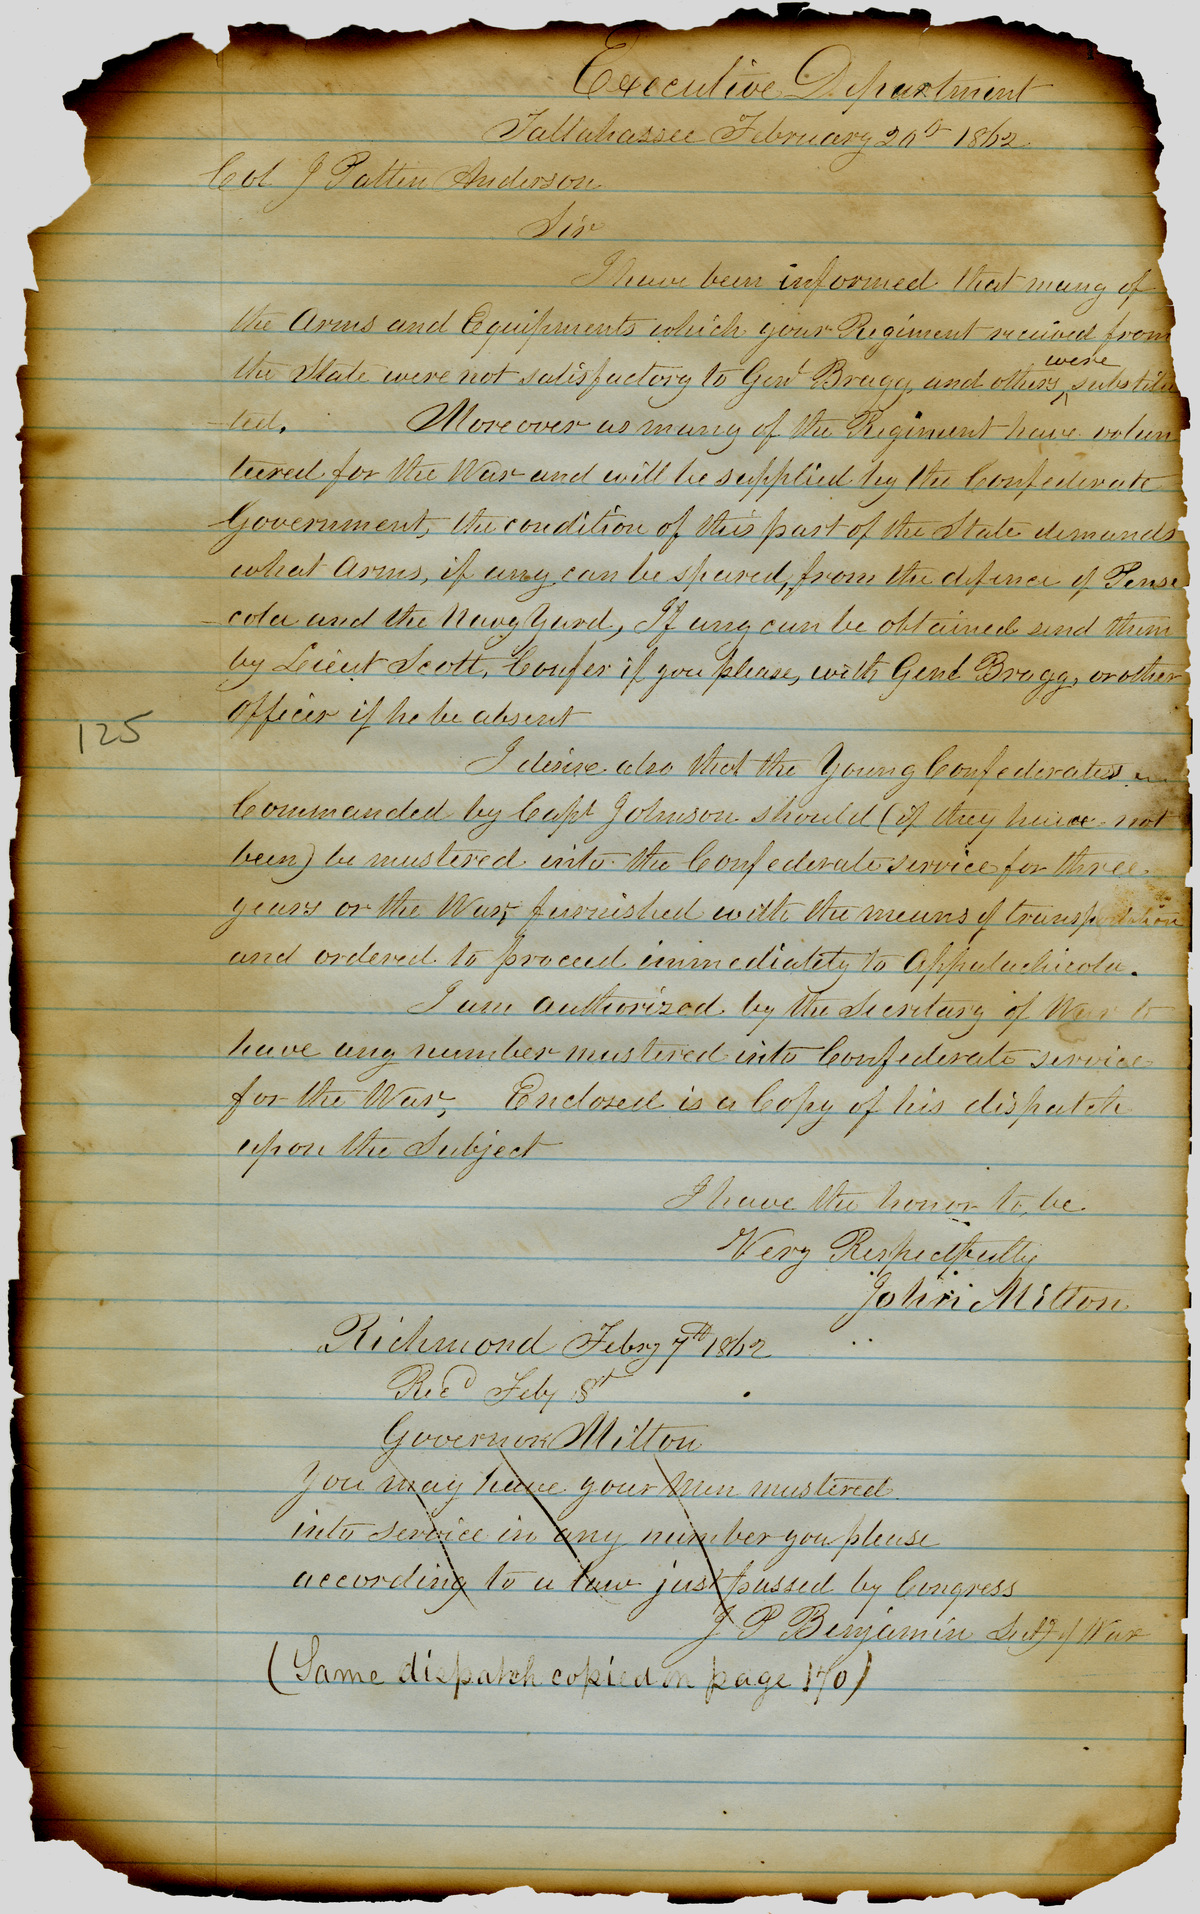 Executive Department
Tallahassee February 20th 1862
Col J Patten Anderson
Sir
I have been informed that many of
the Arms and Equipments which your Regiment received from
the State were not satisfactory to Genl Bragg, and others were substitu
ted. Moreover as many of the Regiment have volun
teered for the War and will be supplied by the Confederate
Government, the condition of this part of the State demands
what Arms, if any can be spared, from the defence of Pensa
cola and the Navy Yard, If any can be obtained send them
by Lieut Scott, Confer if you please, with Genl Bragg, or other
officer if he be absent
125
I desire also that the Young Confederates
Commanded by Capt Johnson should (if they have not
been) be mustered into the Confederate service for three
years or the War, furnished with the means of transportation
and ordered to proceed immediately to Appalachicola.
I am authorized by the Secretary of War to
have any number mustered into Confederate service
for the War, Enclosed is a Copy of his dispatch
upon the Subject
I have the honor to be
Very Respectfully
John Milton
Richmond Febry 7th 1862
Recd Feby 8th
Governor Milton
You may have your men mustered
into service in any number you please
according to a law just passed by Congress
J P Benjamin Secty of War
(Same dispatch copied on page 170)